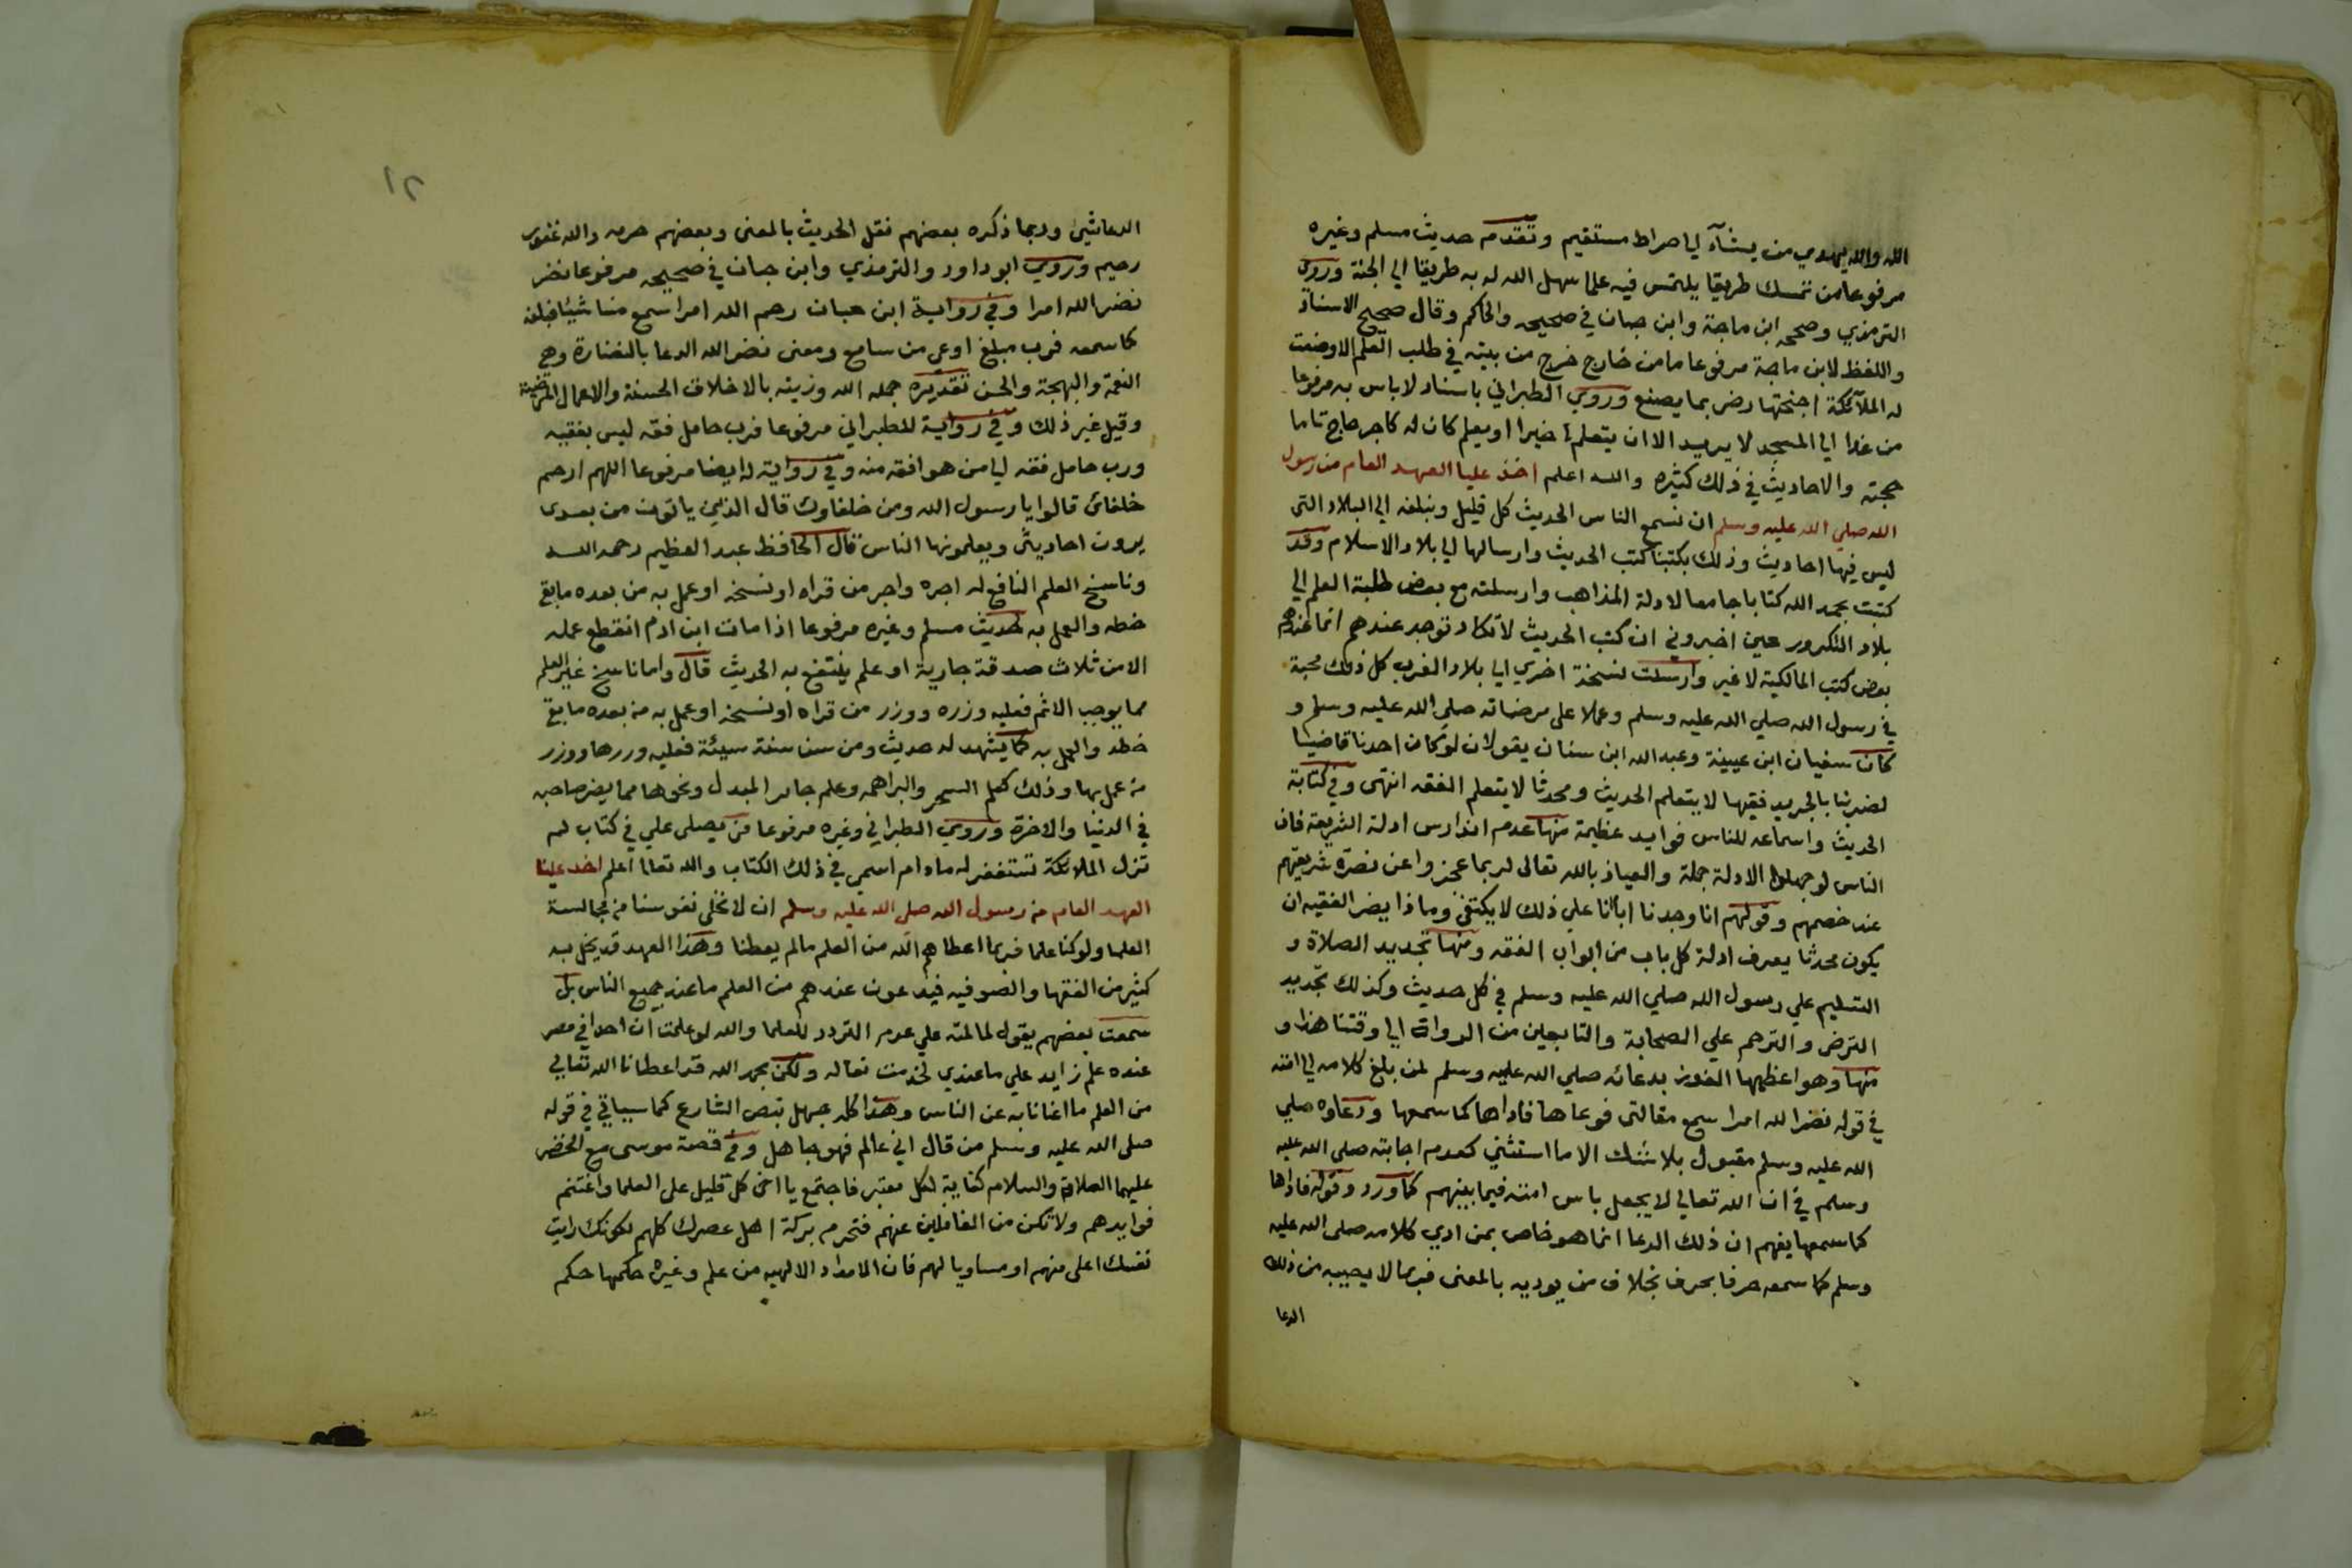 الله والله يهدي من يشآء الي صراط مستقيم وتقدم حديث مسلم وغيره
مرفوعا من تمسك طريقا يلتمس فيه علما سهل الله له به طريقا الي الجنة وروي
الترمذي وصححه ابن ماجة وابن حبان في صحيحه والحاكم وقال صحيح الاسناد
واللفظ لابن ماجة مرفوعا ما من خارج خرج من بيته في طلب العلم الا وضعت
له الملآئكة اجنحتها رضي بما يصنع وروي الطبراني باسناد لا باس به مرفوعا
من غدا الي المسجد لا يريد الا ان يتعلم خيرا او يعلم كان له كاجر حاج تاما
حجته والاحاديث في ذلك كثيره والله اعلم اخذ علينا العهد العام من رسول
الله صلي الله عليه وسلم ان نسمع الناس الحديث كل قليل ونبلغه الي البلاد التي
ليس فيها احاديث وذلك بكتبنا كتب الحديث وارسالها الي بلاد الاسلام وقد
كتبت بحمد الله كتابا جامعا لادلة المذاهب وارسلته مع بعض طلبة العلم الي
بلاد التكرور حين اخبروني ان كتب الحديث لا تكاد توجد عندهم انما عندهم
بعض كتب المالكية لا غير وارسلت نسخة اخري الي بلاد الغرب كل ذلك محبة
في رسول الله صلي الله عليه وسلم وعملا علي مرضاته صلي الله عليه وسلم و
كان سفيان ابن عيينة وعبد الله ابن سنان يقولان لو كان احدنا قاضيا
لضربنا بالجريد فقيها لا يتعلم الحديث ومحدثا لا يتعلم الفقه انتهي وفي كتابة
الحديث واسماعه للناس فوايد عظيمة منها عدم اندارس ادلة الشريعة فان
الناس لو جهلوا الادلة جملة والعياذ بالله تعالي لربما عجزوا عن نصرة شريعتهم
عند خصمهم وقولهم انا وجدنا اباءنا علي ذلك لا يكتفي وماذا يضر الفقيه ان
يكون محدثا يعرف ادلة كل باب من ابواب الفقه ومنها تجديد الصلاة و
التسليم علي رسول الله صلي الله عليه وسلم في كل حديث وكذلك تجديد
الترضي والترحم علي الصحابة والتابعين من الرواة الي وقتنا هذا و
منها وهو اعظمها الفوز بدعائه صلي الله عليه وسلم لمن بلغ كلامه الي امته
في قوله نضر الله امرا سمع مقالتي فوعاها فاداها كما سمعها ودعاوه صلي
الله عليه وسلم مقبول بلا شك الا ما استثني كعدم اجابته صلي الله عليه
وسلم في ان الله تعالي لا يجعل باس امته فيما بينهم كما ورد وقوله فاداها
كما سمعها يفهم ان ذلك الدعا انما هو خاص بمن ادي كلامه صلي الله عليه
وسلم كما سمعه حرفا بحرف بخلاف من يوديه بالمعني فربما لا يصيبه من ذلك
الدعا
٢١
الدعا شيئ وربما ذكره بعضهم نقل الحديث بالمعني وبعضهم حرمه والله غفور
رحيم وروي ابو داود والترمذي وابن حبان في صحيحه مرفوعا نضر
نضر الله امرا وفي رواية ابن حبان رحم الله امرا سمع منا شيئا فبلغه
كما سمعه فرب مبلغ اوعي من سامع ومعني نضر الله الدعا بالنضارة وهي
النعمة والبهجة والحسن تقديره جمله الله وزينه بالاخلاق الحسنة والاعمال المرضية
وقيل غير ذلك وفي رواية للطبراني مرفوعا فرب حامل فقه ليس بفقيه
ورب حامل فقه الي من هو افقه منه وفي رواية له ايضا مرفوعا اللهم ارحم
خلفائ قالوا يا رسول الله ومن خلفاوك قال الذين ياتون من بعدي
يروون احاديثي ويعلمونها الناس قال الحافظ عبد العظيم رحمه الله
وناسخ العلم النافع له اجره واجر من قراه او نسخه او عمل به من بعده ما بقي
خطه والعمل به لحديث مسلم وغيره مرفوعا اذا مات ابن ادم انقطع عمله
الا من ثلاث صدقة جارية او علم ينتفع به الحديث قال واما ناسخ غير العلم
مما يوجب الاثم فعليه وزره ووزر من قراه او نسخه او عمل به من بعده ما بقي
خطه والعمل به كما يشهد له حديث ومن سن سنة سيئة فعليه وزرها ووزر
من عمل بها وذلك كعلم السحر والبراهمه وعلم جابر المبدل ونحوها مما يضر صاحبه
في الدنيا والاخرة وروي الطبراني وغيره مرفوعا من يصلي علي في كتاب لم
تزل الملائكة تستغفر له ما دام اسمي في ذلك الكتاب والله تعالي اعلم اخذ علينا
العهد العام من رسول الله صلي الله عليه وسلم ان لا نخلي نفوسنا من مجالسة
العلما ولو كنا علما فربما اعطاهم الله من العلم ما لم يعطنا وهذا العهد قد يخل به
كثير من الفقها والصوفيه فيدعون عندهم من العلم ما عند جميع الناس بل
سمعت بعضهم يقول لما لمته علي عدم التردد للعلما والله لو علمت ان احدا في مصر
عنده علم زايد علي ما عندي لخدمت نعاله ولكن بحمد الله قد اعطانا الله تعالي
من العلم ما اغنانا به عن الناس وهذا كله جهل بنص الشارع كما سياتي في قوله
صلي الله عليه وسلم من قال اني عالم فهو جاهل وفي قصة موسي مع الخضر
عليهما الصلاة والسلام كفاية لكل معتبر فاجتمع يا اخي كل قليل علي العلما واغتنم
فوايدهم ولا تكن من الغافلين عنهم فتحرم بركة اهل عصرك كلهم لكونك رايت
نفسك اعلي منهم او مساويا لهم فان الامداد الالهيه من علم وغيره حكمها حكم